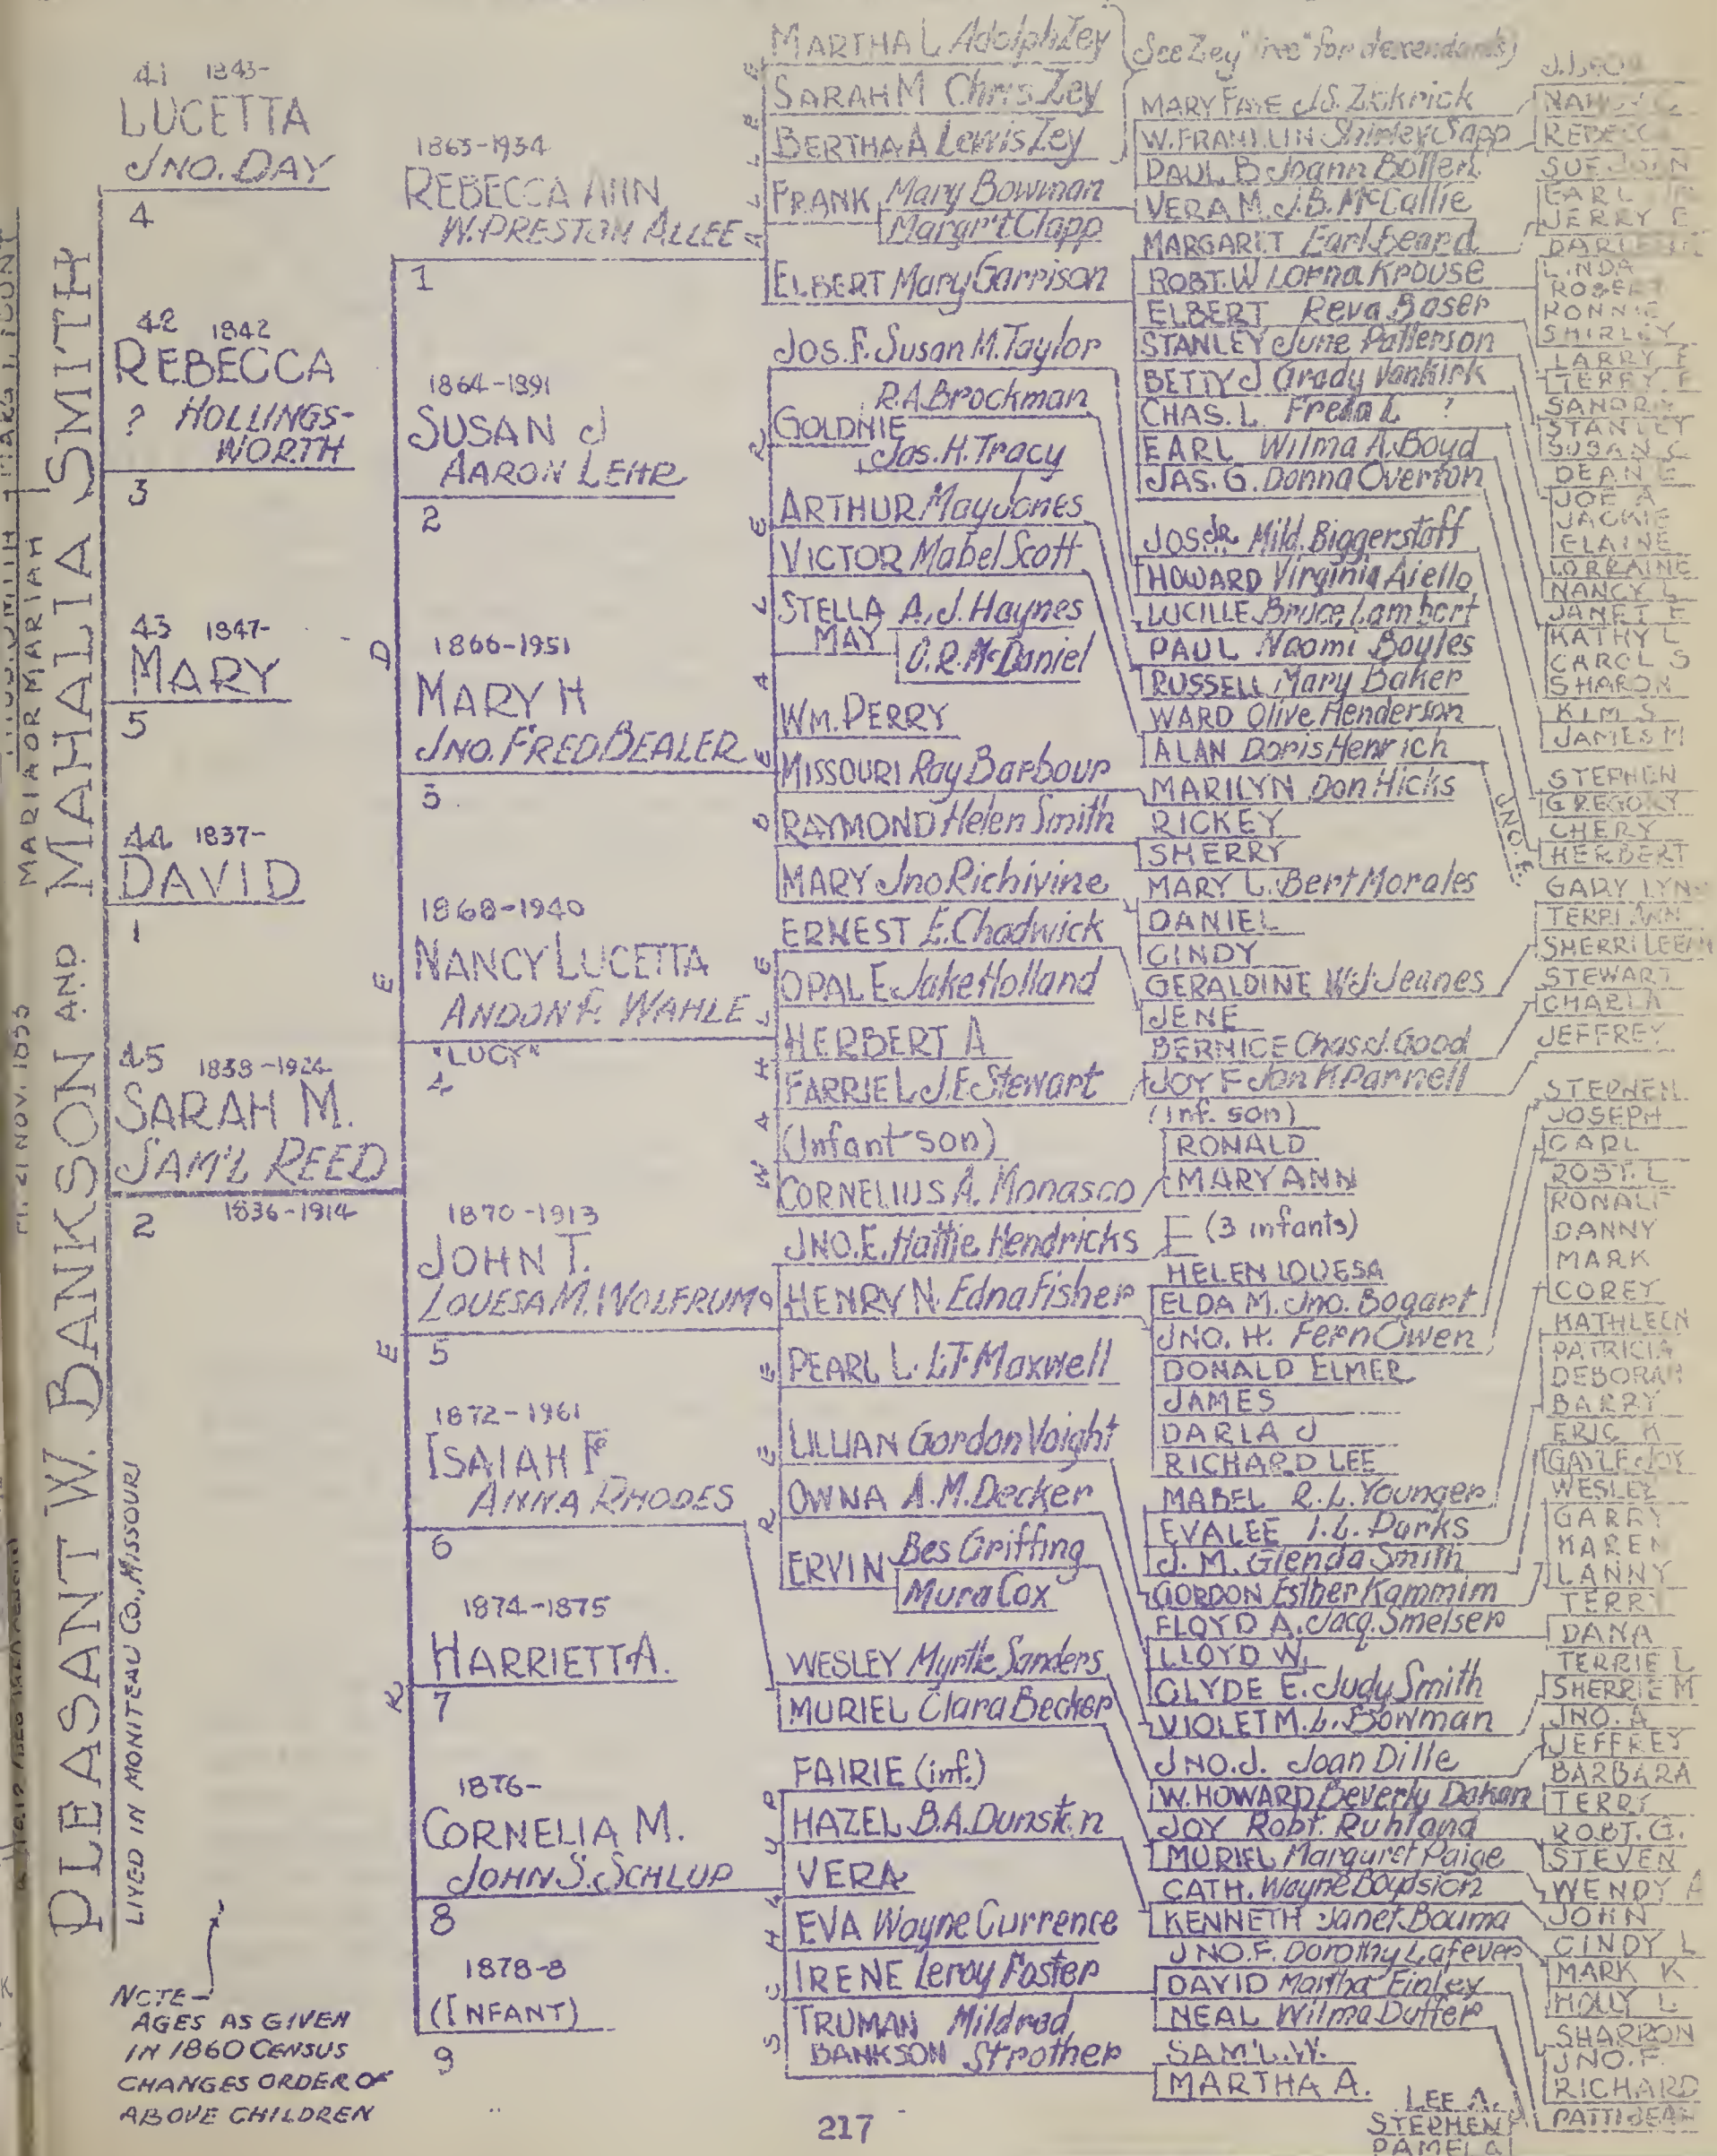 PLEASANT W. BANKSON AND MAHALIA SMITH
MARIA OR MARIAH
21 NOV. 1833
LIVED IN MONITEAU CO., MISSOURI
41 1843-
LUCETTA
JNO. DAY
4
42 1842
REBECCA
? HOLLINGS-
WORTH
3
43 1847-
MARY
5
44 1837-
DAVID
1
45 1838-1924
SARAH M.
SAM'L REED
1836-1914
2
NOTE-
AGES AS GIVEN
IN 1860 CENSUS
CHANGES ORDER OF
ABOVE CHILDREN
REED
1863-1934
REBECCA ANN
W. PRESTON ALLEE
1
1864-1891
SUSAN J
AARON LEHR
2
1866-1951
MARY H
JNO. FRED BEALER
3
1868-1940
NANCY LUCETTA
ANDON F. WAHLE
"LUCY"
4
1870-1913
JOHN T.
LOUESA M. WOLFRUM
5
1872-1961
ISAIAH F
ANNA RHODES
6
1874-1875
HARRIETT A.
7
1876-
CORNELIA M.
JOHN S. SCHLUP
8
1878-8
(INFANT)
9
MARTHA L Adolph Zey
(See Zey "tree" for descendants)
SARAH M Chris Zey
BERTHA A Lewis Zey
FRANK Mary Bowman
Margr't Clapp
ELBERT Mary Garrison
BEALER
JOS. F. Susan M. Taylor
R.A. Brockman
GOLDNIE
Jas. H. Tracy
ARTHUR May Jones
VICTOR Mabel Scott
STELLA A. J. Haynes
MAY O.R. McDaniel
WM. PERRY
MISSOURI Ray Barbour
RAYMOND Helen Smith
MARY Jno Richivine
WAHLE
ERNEST E. Chadwick
OPAL E Jake Holland
HERBERT A
FARRIE L J.E. Stewart
(Infant son)
CORNELIUS A. Monasco
REED
JNO. E. Hattie Hendricks
HENRY N. Edna Fisher
PEARL L. L.T. Maxwell
LILLIAN Gordon Voight
OWNA A.M. Decker
ERVIN Bes Griffing
Mura Cox
WESLEY Myrtle Sanders
MURIEL Clara Becker
SCHLUP
FAIRIE (inf.)
HAZEL B.A. Dunst n
VERA
EVA Wayne Currence
IRENE Leroy Foster
TRUMAN Mildred
BANKSON Strother
MARY FAYE J.S. Zickrick
W. FRANKLIN Shirley Sapp
PAUL B Joann Bolleri
VERA M. J.B. McCallie
MARGARET Earl Beard
ROBT. W Lorna Krouse
ELBERT Reva Baser
STANLEY June Patterson
BETTY J Grady Vankirk
CHAS. L. Freda L ?
EARL Wilma A. Boyd
JAS. G. Donna Overton
JOS. JR. Mild. Biggerstaff
HOWARD Virginia Aiello
LUCILLE Bruce Lambert
PAUL Naomi Boyles
RUSSELL Mary Baker
WARD Olive Henderson
ALAN Doris Henrich
JNO. E.
MARILYN Don Hicks
RICKEY
SHERRY
MARY L. Bert Morales
DANIEL
CINDY
GERALDINE W.J. Jeanes
JENE
BERNICE Chas. J. Good
JOY F Jon K Parnell
(inf. son)
RONALD
MARY ANN
(3 infants)
HELEN LOUESA
ELDA M. Jno. Bogart
JNO. H. Fern Owen
DONALD ELMER
JAMES
DARLA J
RICHARD LEE
MABEL R.L. Younger
EVALEE I.L. Parks
J. M. Glenda Smith
GORDON Esther Kammim
FLOYD A. Jacq. Smelser
LLOYD W.
CLYDE E. Judy Smith
VIOLET M. L. Bowman
JNO. J. Joan Dille
W. HOWARD Beverly Dakan
JOY Robt. Ruhland
MURIEL Margaret Paige
CATH. Wayne Boydsion
KENNETH Janet Bouma
JNO. F. Dorothy Lafever
DAVID Martha Finley
NEAL Wilma Duffer
SAM'L. W.
MARTHA A.
LEE A.
STEPHEN
PAMELA
NANCY
REBECCA
SUE JOHN
EARL
JERRY E
LINDA
ROBERT
RONNIE
SHIRLEY
LARRY E
TERRY F
SANDRA
STANLEY
SUSAN C
DEAN E
JOE A
JACKIE
ELAINE
LORRAINE
NANCY L
JANET E
KATHY L
CAROL S
SHARON
KIM S
JAMES M
STEPHEN
GREGORY
CHERY
HERBERT
GARY LYN
TERRI ANN
SHERRI LEEAN
STEWART
CHARLA
JEFFREY
STEPHEN
JOSEPH
CARL
ROBT. L
RONALD
DANNY
MARK
COREY
KATHLEEN
PATRICIA
DEBORAH
BARRY
ERIC K
GAYLE JOY
WESLEY
GARRY
KAREN
LANNY
TERRI
DANA
TERRIE L
SHERRIE M
JNO. A
JEFFREY
BARBARA
TERRY
ROBT. G.
STEVEN
WENDY A
JOHN
CINDY L
MARK K
HOLLY L
SHARRON
JNO. F.
RICHARD
PATTI JEAN
217